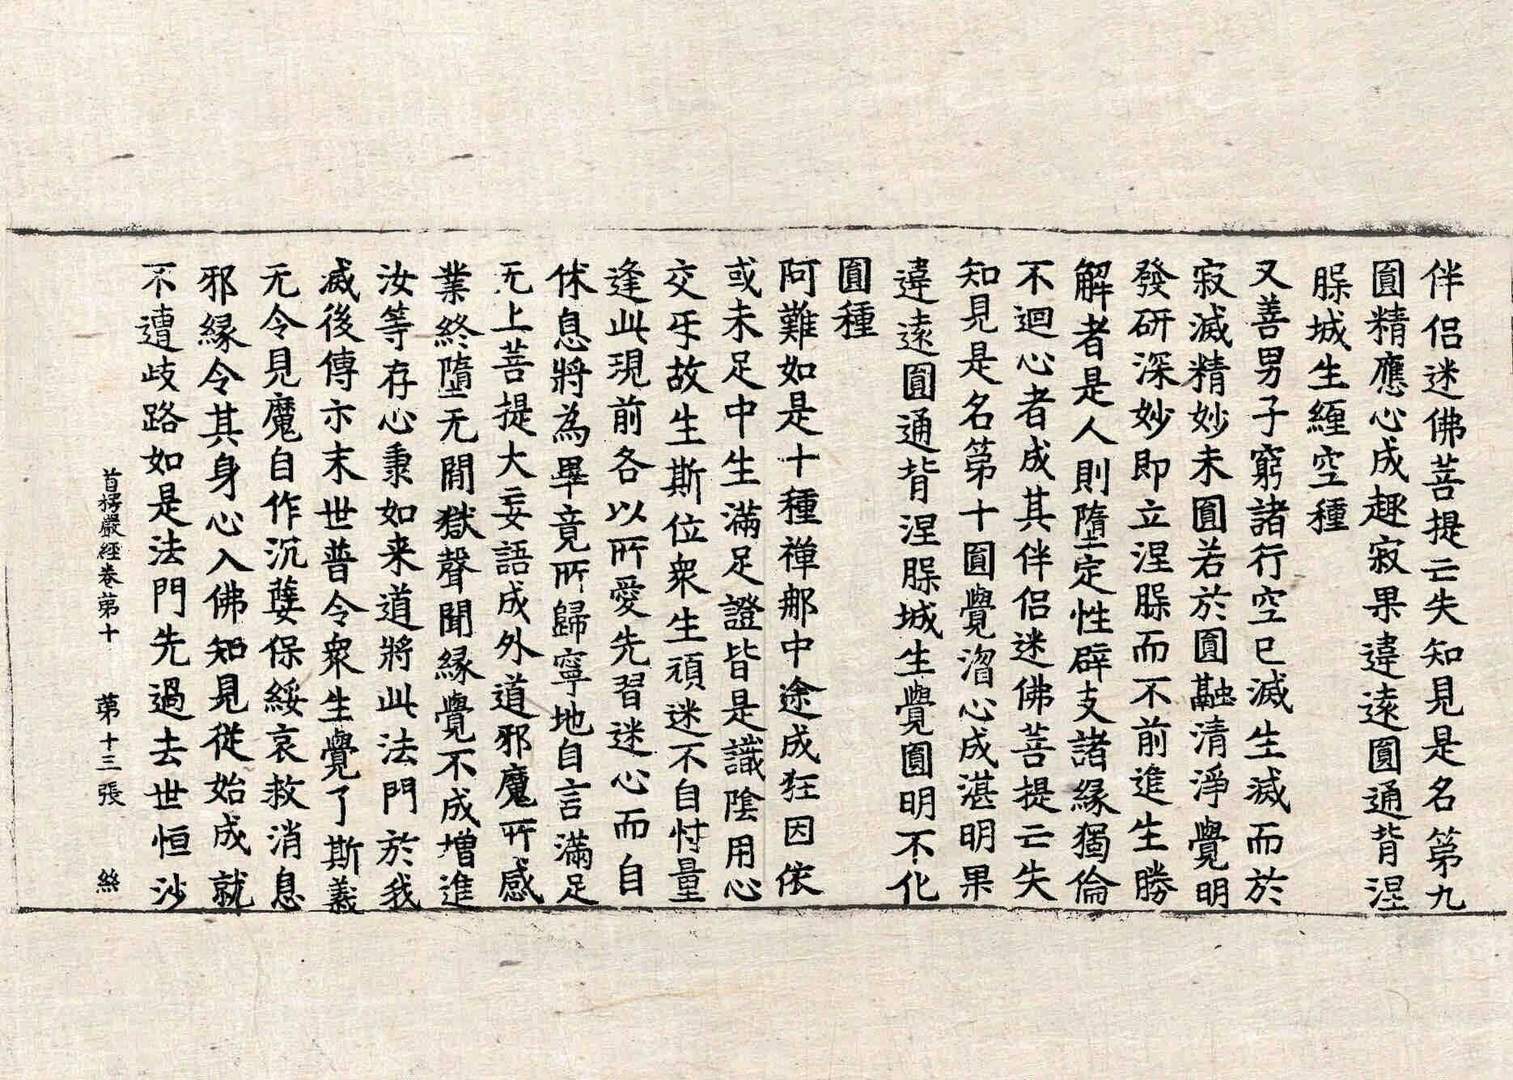 伴侣迷佛菩提亡失知見是名第九
圓精應心成趣寂果違遠圓通背涅
𦛁城生纏空種
又善男子窮諸行空已滅生滅而於
寂滅精妙未圓若於圓融清淨覺明
發研深妙即立涅𦛁而不前進生勝
解者是人則墮定性辟支諸緣獨倫
不迴心者成其伴侣迷佛菩提亡失
知見是名第十圓覺㴘心成湛明果
違遠圓通背涅𦛁城生覺圓明不化
圓種
阿難如是十種禪那中途成狂因依
或未足中生滿足證皆是識陰用心
交㸦故生斯位衆生頑迷不自忖量
逢此現前各以所愛先習迷心而自
休息將為畢竟所歸寧地自言滿足
无上菩提大妄語成外道邪魔所感
業終墮无閒獄聲聞緣覺不成增進
汝等存心秉如来道將此法門於我
滅後傳示末世普令衆生覺了斯義
无令見魔自作沉孽保綏哀救消息
邪緣令其身心入佛知見從始成就
不遭歧路如是法門先過去世恒沙
首楞嚴經卷第十　第十三張　絲